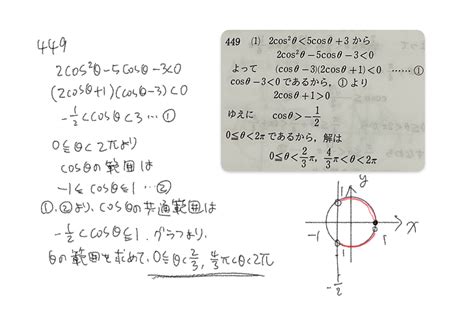 449
2cos²θ-5cosθ-3<0
(2cosθ+1)(cosθ-3)<0
-1/2<cosθ<3…①
0≦θ<2πより
cosθの範囲は
-1≦cosθ≦1…②
①,②より、cosθの共通範囲は
-1/2<cosθ≦1.グラフより、
θの範囲を求めて、0≦θ<2/3, 4/3π<θ<2π
449 (1) 2cos²θ<5cosθ+3 から
2cos²θ-5cosθ-3<0
よって (cosθ-3)(2cosθ+1)<0 ……①
cosθ-3<0であるから、①より
2cosθ+1>0
ゆえに cosθ>-1/2
0≦θ<2π であるから、解は
0≦θ<2/3π, 4/3π<θ<2π
y
1
-1
1
x
-1
-1/2